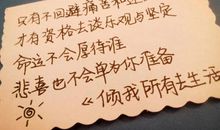 只有不回避痛苦和迷
才有资格去谈乐观与坚定
命运不会厚待谁
悲喜也不会单为你准备
《倾我所有去生活